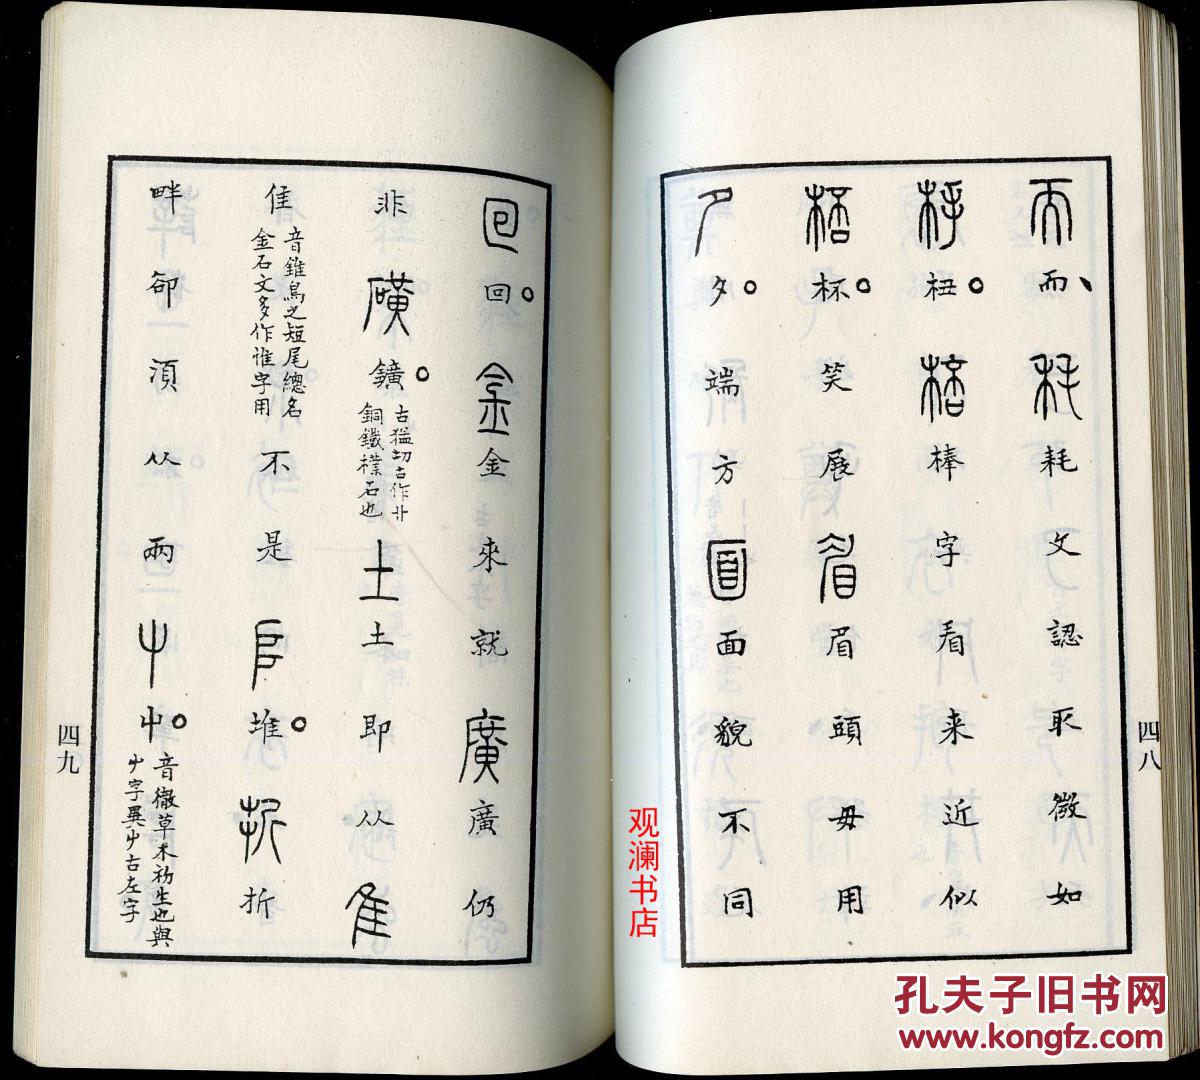 而而、秏耗文認取微如
杽杻。棓棒字看来近似
桮杯。笑展眉眉頭毋用
夕夕。端方面面貌不同
四八
回回。金金來就廣廣仍
非磺鑛。古猛切古作卝
銅鐵樸石也
土土即从隹
隹音錐鳥之短尾總名
金石文多作惟字用
不是𠂤堆。折折
畔卻須从兩屮屮。音徹草木初生也與
屮字異屮古左字
四九
观澜书店
孔夫子旧书网
www.kongfz.com